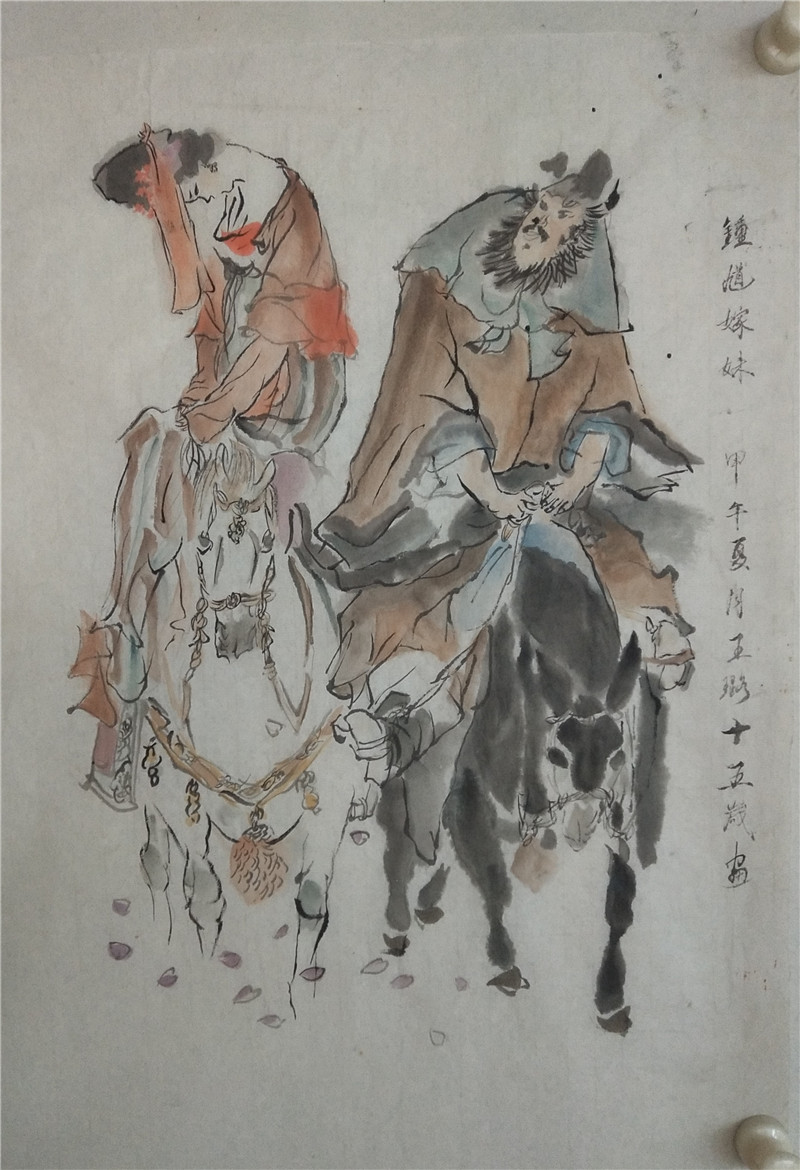 鍾馗嫁妹 甲午夏月王璐十五歲畫